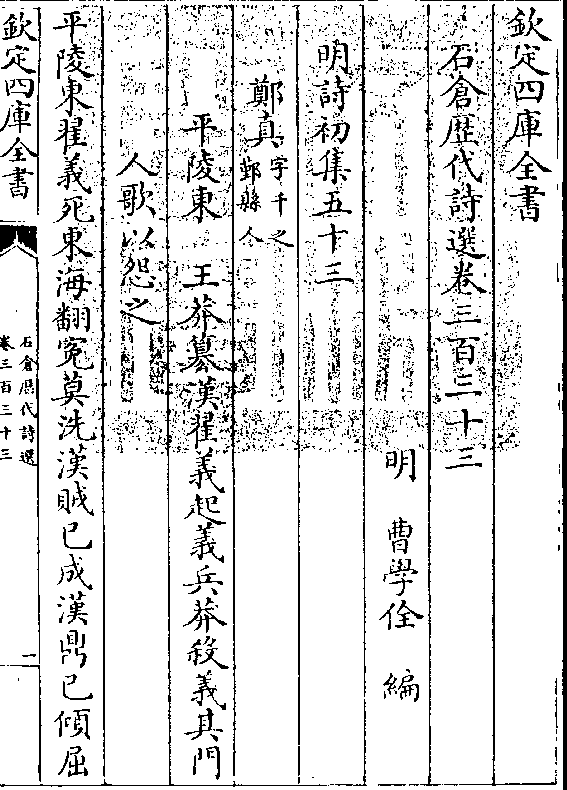 欽定四庫全書
石倉歴代詩選卷三百三十三
明 曹學佺 編
明詩初集五十三
鄭真字千之鄞縣人
平陵東 王莽簒漢翟義起義兵莽殺義其門
人歌以怨之
平陵東翟義死東海翻寃莫洗漢賊已成漢鼎已傾屈
欽定四庫全書
石倉歴代詩選
卷三百三十三
一